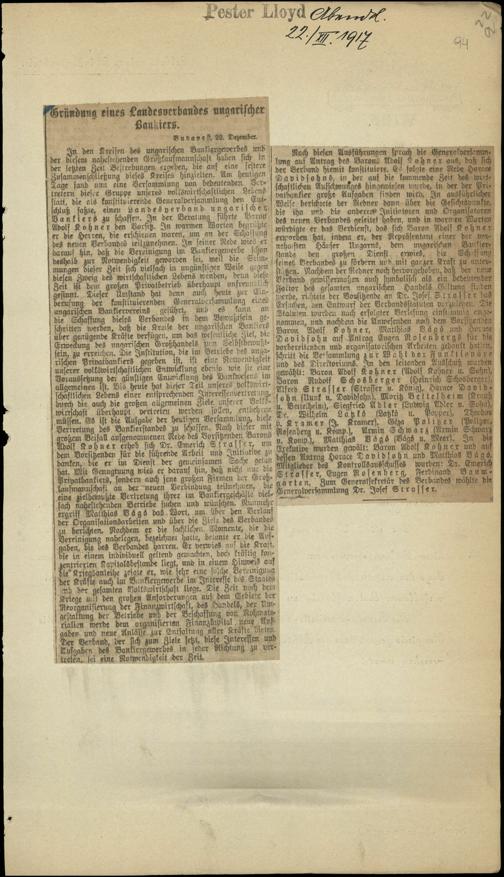 Pester Lloyd Abendl.
22./XII. 1917
94
Gründung eines Landesverbandes ungarischer
Bankiers.
Budapest, 22. Dezember.
In den Kreisen des ungarischen Bankiergewerbes und
der diesem nahestehenden Großkaufmannschaft haben sich in
der letzten Zeit Bestrebungen ergeben, die auf eine festere
Zusammenschließung dieses Kreises hinzielten. Am heutigen
Tage fand nun eine Versammlung von bedeutenden Ver-
tretern dieser Gruppe unseres volkswirtschaftlichen Lebens
statt, die als konstituierende Generalversammlung den Ent-
schluß faßte, einen Landesverband ungarischer
Bankiers zu schaffen. In der Beratung führte Baron
Adolf Kohner den Vorsitz. In warmen Worten begrüßte
er die Herren, die erschienen waren, um an der Schaffung
des neuen Verbandes teilzunehmen. In seiner Rede wies er
darauf hin, daß die Vereinigung im Bankiergewerbe schon
deshalb zur Notwendigkeit geworden sei, weil die Strö-
mungen dieser Zeit sich vielfach in ungünstiger Weise gegen
diesen Zweig des wirtschaftlichen Lebens wenden, wie diese
Zeit ist dem großen Privatbetrieb überhaupt unfreundlich
gesinnt. Dieser Umstand hat denn auch heute zur Ein-
berufung der konstituierenden Generalversammlung eines
ungarischen Bankiervereins geführt, und es kann an
die Schaffung dieses Verbandes in dem Bewußtsein ge-
schritten werden, daß die Kreise der ungarischen Bankiers
über genügende Kräfte verfügen, um das wesentliche Ziel, die
Erweckung des ungarischen Großhandels zum Selbstbewußt-
sein, zu erreichen. Die Institution, die im Betriebe des ungari-
schen Privatbankiers gegeben ist, ist eine Notwendigkeit
unserer volkswirtschaftlichen Entwicklung ebenso wie sie eine
Voraussetzung der günstigen Entwicklung des Bankwesens im
allgemeinen ist. Bis heute hat dieser Teil unseres volkswirt-
schaftlichen Lebens einer entsprechenden Interessenvertretung
durch die auch die großen allgemeinen Ziele unserer Volks-
wirtschaft überhaupt vertreten werden sollen, entbehren
müssen. Es ist die Aufgabe der heutigen Versammlung, diese
Vertretung des Bankierstandes zu schaffen. Nach dieser mit
großem Beifall aufgenommenen Rede des Vorsitzenden Baron
Adolf Kohner erhob sich Dr. Emerich Strasser, um
dem Vorsitzenden für die führende Arbeit und Initiative zu
danken, die er im Dienst der gemeinsamen Sache getan
hat. Mit Genugtuung wies er darauf hin, daß nicht nur die
Privatbanken, sondern auch jene großen Firmen der Groß-
kaufmannschaft an der neuen Verbindung teilnehmen, die
eine zielbewußte Vertretung ihrer im Bankiergeschäfte dies-
sach nahestehenden Betriebe suchen und wünschen. Nunmehr
ergriff Matthias Bögs das Wort, um über den Verlauf
der Organisationsarbeiten und über die Ziele des Verbandes
zu berichten. Nachdem er die sachlichen Momente, die die
Vereinigung nahelegen, bezeichnet hatte, betonte er die Auf-
gaben, die des Verbandes harren. Er verwies auf die Kraft,
die in einem individuell geltend gewachten, doch kräftig kon-
zentrierten Kapitalbestande liegt, und in einem Hinweis auf
die Kriegsanleihe zeigte er, wie sehr eine solche Vereinigung
der Kräfte auch im Bankiergewerbe im Interesse des Staates
und der gesamten Volkswirtschaft liege. Die Zeit nach dem
Kriege mit den großen Anforderungen auf dem Gebiete der
Reorganisierung der Finanzwirtschaft, des Handels, der Um-
gestaltung der Betriebe und der Beschaffung von Rohmate-
rialien werde dem organisierten Finanzkapital neue Auf-
gaben und neue Anlässe zur Entfaltung aller Kräfte bieten.
Der Verband, der sich zum Ziele setzt, diese Interessen und
Aufgaben des Bankiergewerbes in jeder Richtung zu ver-
treten, sei eine Notwendigkeit der Zeit.
Nach diesen Ausführungen sprach die Generalversamm-
lung auf Antrag des Barons Adolf Kohner aus, daß sich
der Verband hiemit konstituiere. Es folgte eine Rede Horace
Davidsohns, in der auf die kommende Zeit des wirt-
schaftlichen Aufschwunges hingewiesen wurde, in der der Pri-
vatbankier große Aufgaben finden wird. In ausführlicher
Weise berichtete der Redner dann über die Gesichtspunkte,
die ihn und die anderen Initiatoren und Organisatoren
des neuen Verbandes geleitet haben, und in warmen Worten
würdigte er das Verdienst, das sich Baron Adolf Kohner
erworben hat, indem er, der Repräsentant einer der vor-
nehmsten Häuser Ungarns, dem ungarischen Bankier-
stande den großen Dienst erwies, die Schaffung
seines Verbandes zu fördern und mit ganzer Kraft zu unter-
stützen. Nachdem der Redner noch hervorgehoben, daß der neue
Verband gewissermaßen auch symbolisch als ein bedeutender
Faktor des gesamten ungarischen Handels Geltung finden
werde, richtete der Vorsitzende an Dr. Josef Strasser das
Ersuchen, den Entwurf der Verbandsstatuten vorzulegen. Die
Statuten wurden nach erfolgter Verlesung einstimmig ange-
nommen, und nachdem die Anwesenden noch dem Vorsitzenden
Baron Adolf Kohner, Matthias Bögs und Horace
Davidsohn auf Antrag Eugen Rosenbergs für die
vorbereitenden und organisatorischen Arbeiten gedankt hatten,
schritt die Versammlung zur Wahl der Funktionäre
und des Direktoriums. In den leitenden Ausschuß wurden
gewählt: Baron Adolf Kohner (Adolf Kohner u. Söhne),
Baron Rudolf Schosberger (Heinrich Schosberger),
Alfred Strasser (Strasser u. König), Horace David-
sohn (Kunk u. Davidsohn), Moritz Bettelheim (Kraus
u. Bettelheim), Siegfried Adler (Ludwig Adler u. Sohn),
Dr. Wilhelm Latzkó (Latzkó u. Popper), Theodor
v. Kramer (J. Kramer), Géza Politzer (Politzer,
Rosenberg u. Komp.), Armin Schwarz (Armin Schwarz
u. Komp.), Matthias Bögs (Bögs u. Meer). In die
Exekutive wurden gewählt: Baron Adolf Kohner und auf
dessen Antrag Horace Davidsohn und Matthias Bögs.
Mitglieder des Kontrollausschusses wurden: Dr. Emerich
Strasser, Eugen Rosenberg, Ferdinand Baum-
garten. Zum Generalsekretär des Verbandes wählte die
Generalversammlung Dr. Josef Strasser.